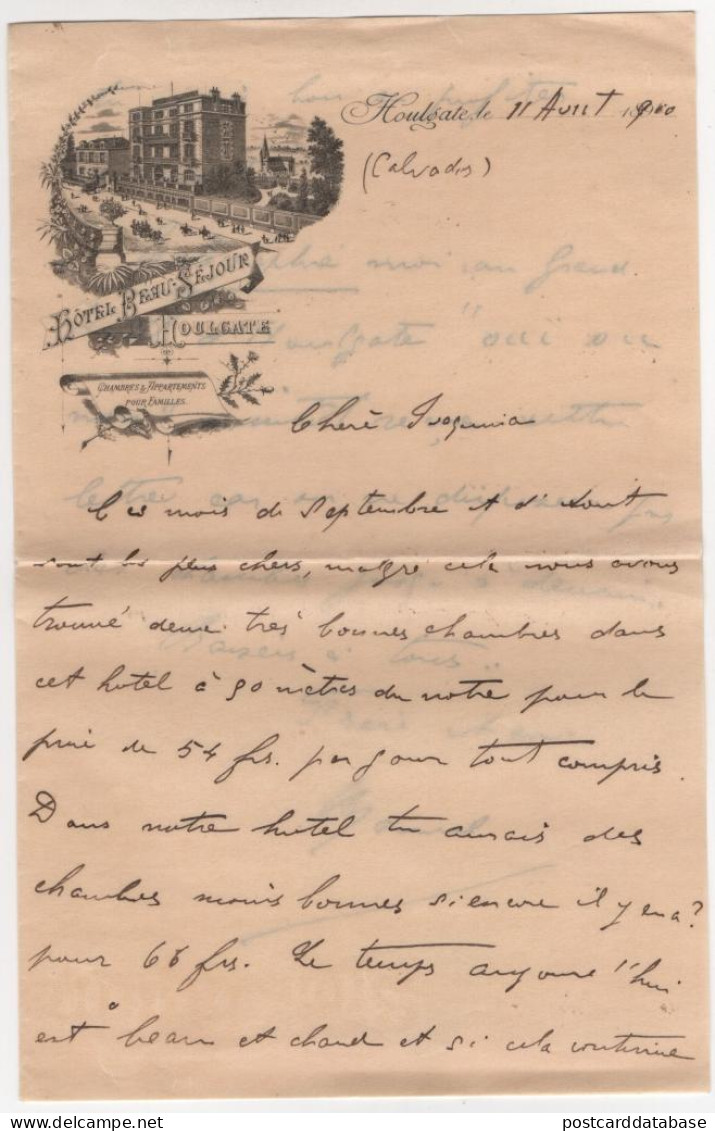 Houlgate, le 11 Aout 1900
(Calvados)
HÔTEL BEAU-SÉJOUR
HOULGATE
CHAMBRES & APPARTEMENTS
POUR FAMILLES.
Cherè
Ces mois de Septembre et d'Aout
sont les plus chers, malgré cela nous avons
trouvé deux très bonnes chambres dans
cet hotel à 90 mètres du notre pour le
prix de 54 frs. par jour tout compris.
Dans notre hotel tu aurais des
chambres moins bonnes si encore il y en a?
pour 66 frs. Le temps aujourd'hui
est beau et chaud et si cela continue
postcarddatabase